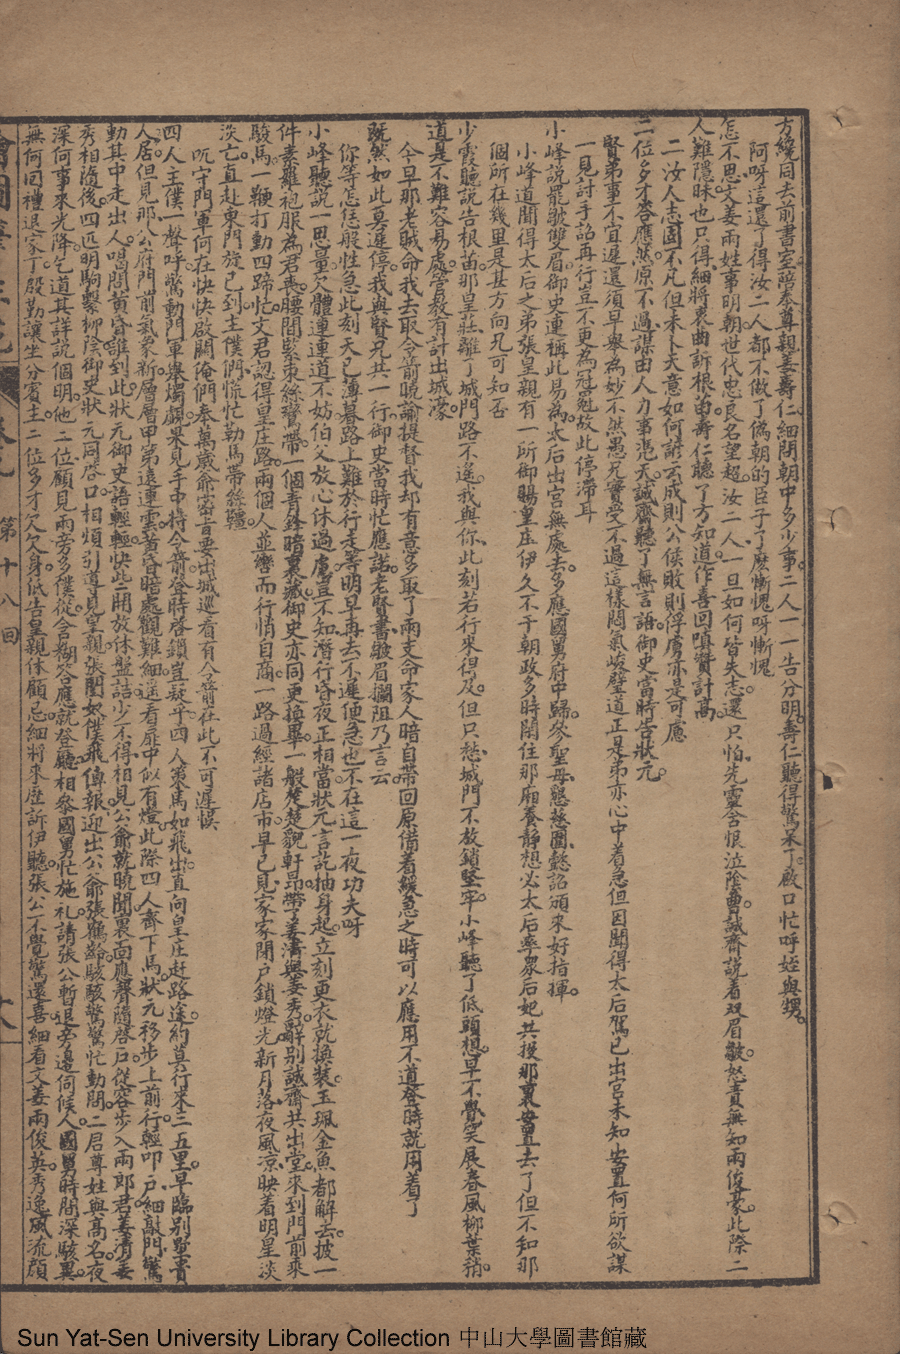 方繞同去前書室碚奉尊親姜壽仁細問朝中多少事二人一一告分明壽仁聽得驚呆了啟口忙呼姪與甥
阿呀這還了得汝二人都不做了偽朝的臣子了麽慚愧呀慚愧
怎不思文姜兩姓事明朝世代忠良名望超汝二人一旦如何皆失志還只怕先靈含恨泣陰曹誠齋説着双眉皺怒責無知兩俊豪此際二
人難隱昧也只得細將衷曲訴根苗壽仁聽了方知道作喜回嗔贊計高
二汝人志固不凡但未卜天意如何諺云成則公侯敗則俘虜亦是可慮
二位多才答應然原不過謀由人力事憑天誠齋聽了無言語御史當時告狀元
賢弟事不宜遲還須早舉為妙不然愚兄實受不過這樣悶氣峻壁道正是弟亦心中着急但因聞得太后駕已出宮未知安置何所欲謀
一見討手詔再行豈不更為冠冕故此停滯耳
小峰説罷皺雙眉御史連稱此易為太后出宮無處去多應國舅府中歸參聖母懇慈圍懿詔頒來好指揮
小峰道聞得太后之弟張皇親有一所御賜皇庄伊久不于朝政多時閒住那廂養靜想必太后率眾后妃共後那裏安置去了但不知那
個所在幾里是甚方向兄可知否
少霞聽説告根苗那皇莊離了城門路不遙我與你此刻若行來得及但只愁城門不放鎖堅牢小峰聽了低頭想早不覺笑展春風柳葉稍
道是不難容易處管教有計出城濠
今早那老賊命我去取令箭曉諭提督我却有意多取了兩支命家人暗自帶回原備着緩急之時可以應用不道登時就用着了
既然如此莫遲停我與賢兄共一行御史當時忙應諾老賢書皺眉攔阻乃言云
你等怎恁般性急此刻天已薄暮路上難於行走等明早再去不遲便急也不在這一夜功夫呀
小峰聽説一思量欠體連連道不妨伯父放心休過慮豈不知潛行昏夜正相當狀元言訖抽身起立刻更衣就換裝玉珮金魚都解去披一
件素羅袍服為君喪腰間緊束絲鸞帶一個青鋒暗裏藏御史亦同更換畢一般楚楚貌軒昂帶了姜濤與姜秀辭别誠齋共出堂來到門前乘
駿馬一鞭打動四蹄忙文君認得皇庄路兩個人並轡而行悄自商一路過經諸店市早已見家家閉戶鎖燈光新月落夜風凉映着明星淡
淡亡直赴東門旋已到主僕們慌忙勒馬帶絲韁
叱守門軍何在快快啟關俺們奉萬歲爺密旨要出城巡看有令箭在此不可遲悞
四人主僕一聲呼驚動門軍舉燭覷果見手中持令箭登時啓鎖豈疑乎四人策馬如飛出直向皇庄赶路途約莫行來三五里早臨别墅貴
人居但見那公府門前氣象新層層甲第遠連雲黃昏暗處觀難細遙看扉中似有燈此際四人齊下馬狀元移步上前行輕叩戶細敲門驚
動其中走出人喝問黃昏誰到此狀元御史語輕輕快些開放休盤詰少不得相見公爺就曉聞裏面應聲隨啓戶從容步入兩郎君姜清姜
秀相隨後四匹明駒繫柳陰御史狀元同啓口相煩引導見皇親張閽奴僕飛傳報迎出公爺張鶴齡駭駭驚驚忙動問二君尊姓與高名夜
深何事來光降乞道其詳説個明他二位顧見兩旁多僕從含糊答應就登廳相參國舅忙施礼請張公暫退旁邊伺候人國舅時間深駭異
無何回禮退家丁殷勤讓坐分賓主二位多才欠欠身低告皇親休顧忌細將來歷訴伊聽張公不覺驚還喜細看文姜兩俊英秀逸風流顔
第十八回
Sun Yat-Sen University Library Collection 中山大學圖書館藏